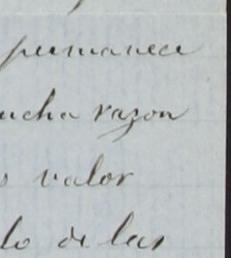 permanece
ucha razon
o valor
lo de las